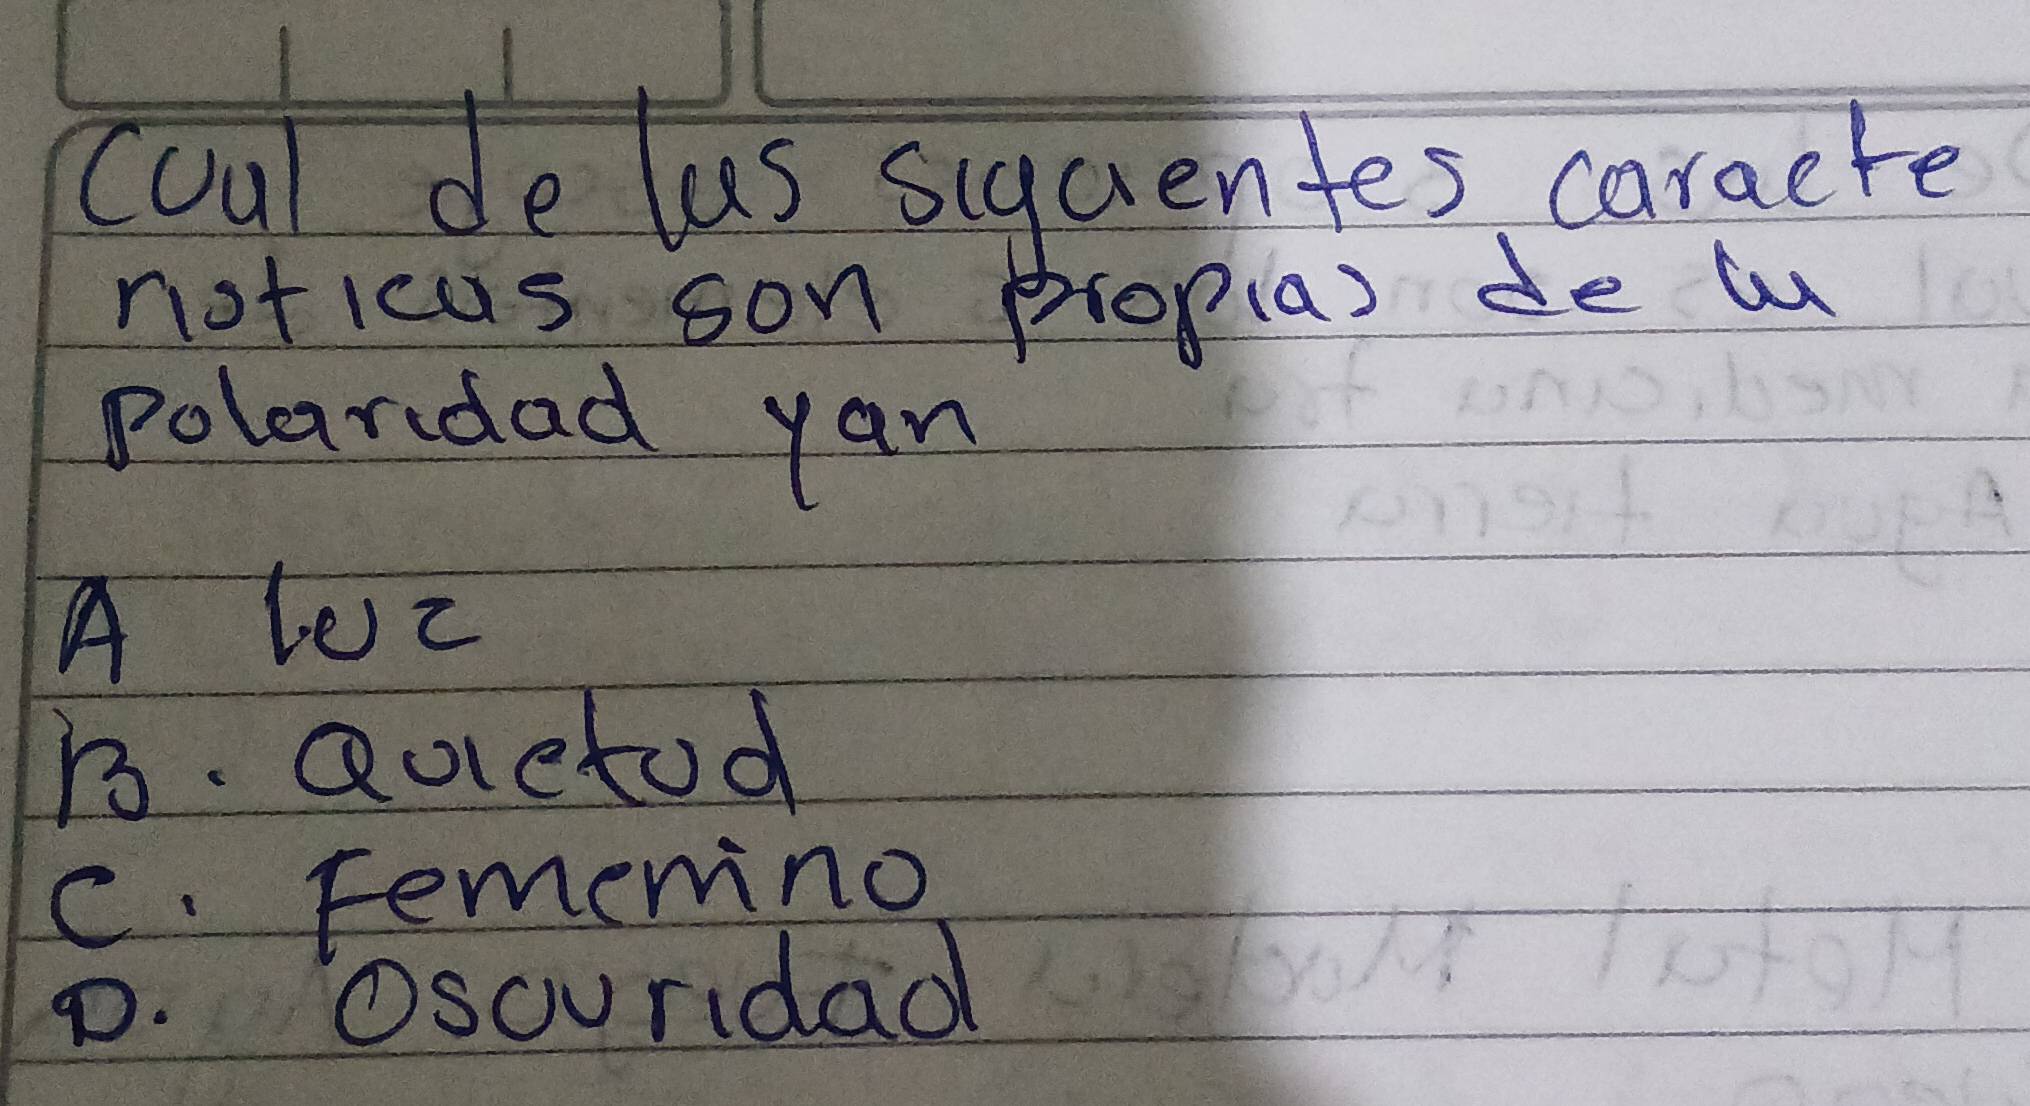 Cual de las siguientes caracte
risticas son propias de la
polaridad yan
A luz
B. Quietud
C. Femenino
D. Oscuridad